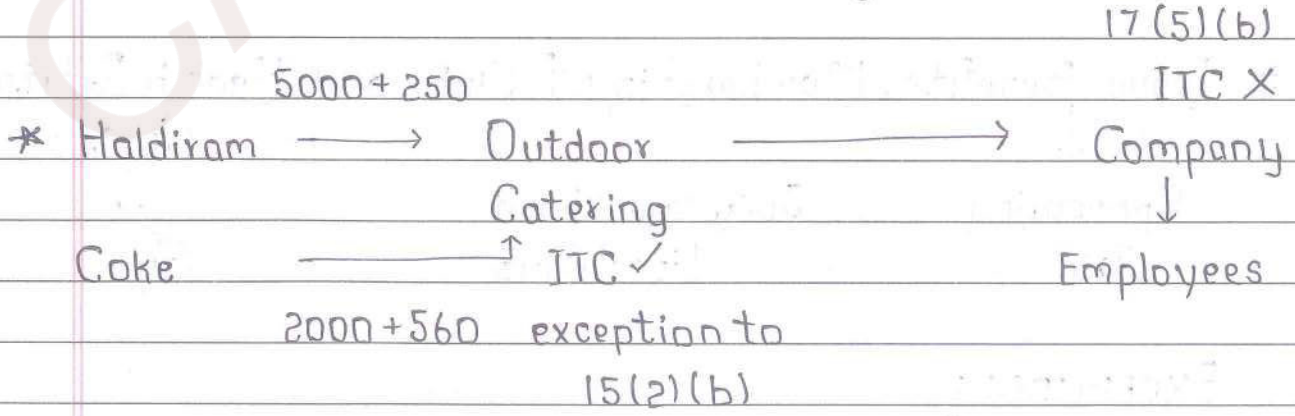 17(5)(b)
5000+250 ITC X
* Haldiram → Outdoor → Company
Catering ↓
Coke → ITC ✓ Employees
2000+560 exception to
15(2)(b)